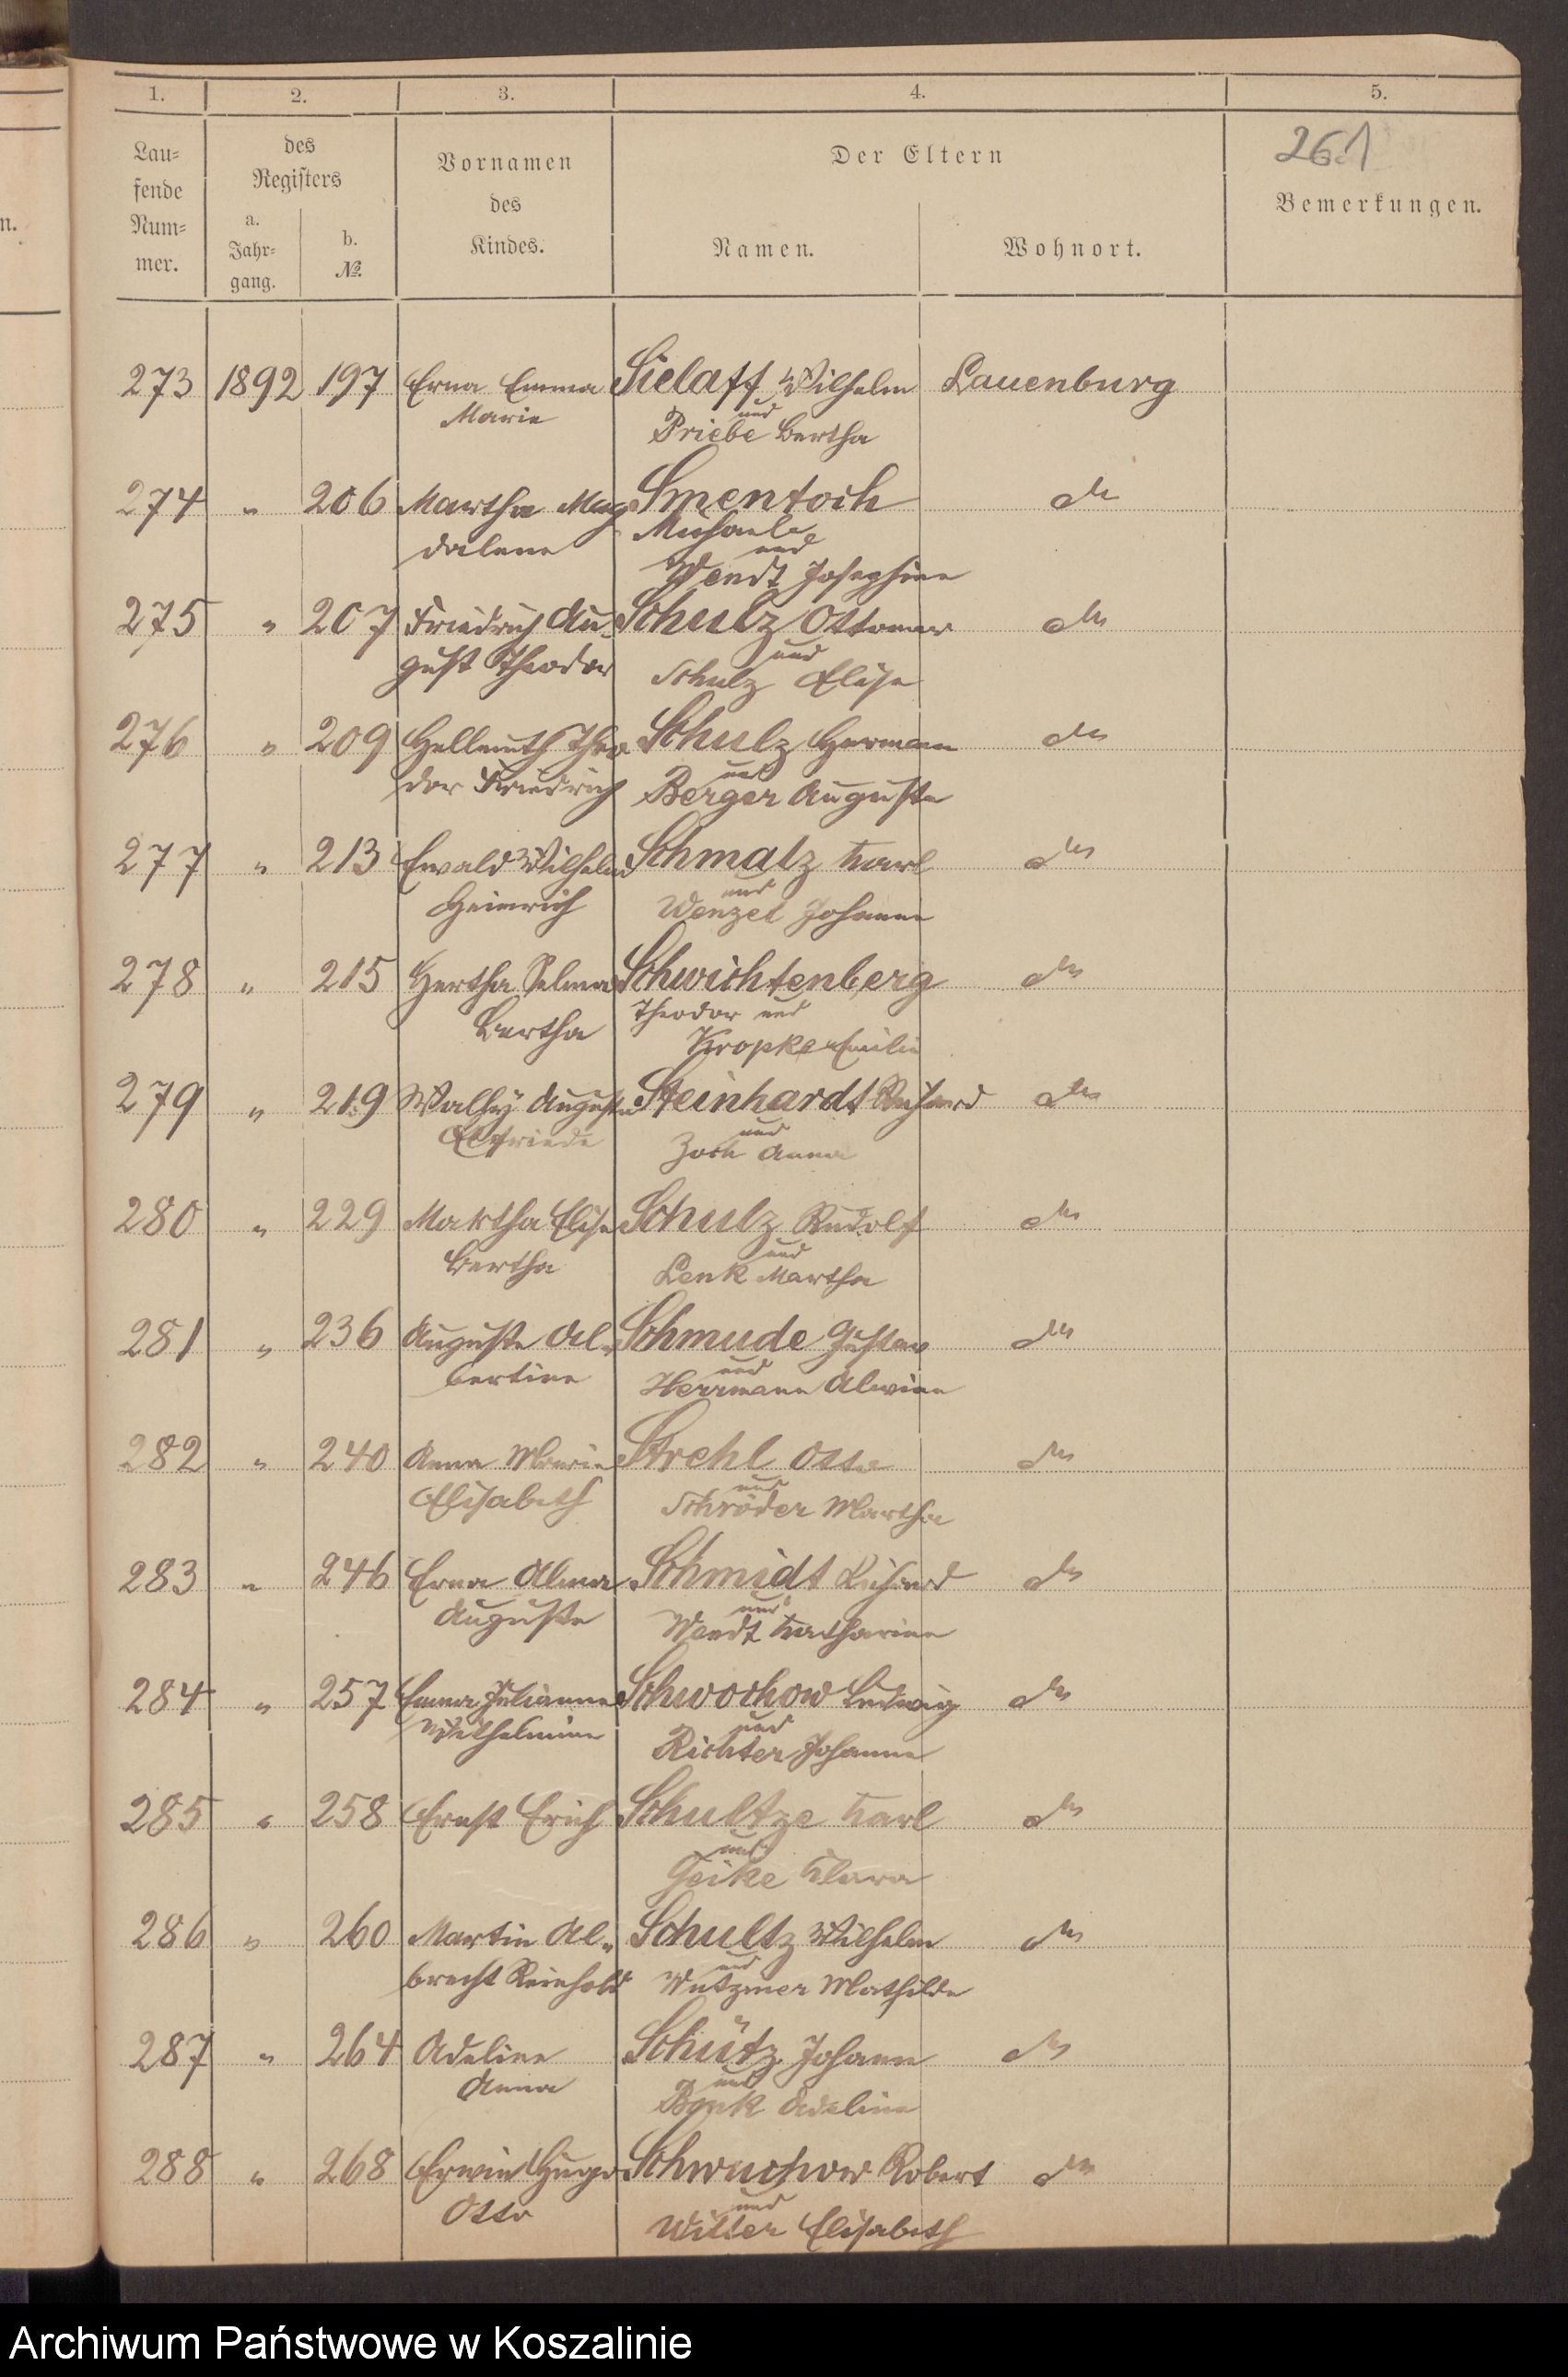 1. 2. 3. 4. 5.
261
Lau=
fende
Num=
mer.
des
Registers
a.
Jahr=
gang.
b.
№.
Vornamen
des
Kindes.
Der Eltern
Namen. Wohnort.
Bemerkungen.
n.
273 1892 197 Erna Emma Sielaff Wilhelm Lauenburg
und
Marie Priebe Bertha
274 " 206 Martha Mag= Smentoch do
Michael
dalene und
Wendt Josephine
275 " 207 Friedrich Au= Schulz Ottomar do
und
gust Theodor Schulz Elise
276 " 209 Hellmuth Theo Schulz Hermann do
und
dor Friedrich Berger Auguste
277 " 213 Ewald Wilhelm Schmalz Karl do
und
Heinrich Wenzel Johanne
278 " 215 Hertha Selma Schwichtenberg do
Theodor und
Bertha Kropke Emilie
279 " 219 Wally Auguste Steinhardt Richard do
und
Elfriede Zoch Anna
280 " 229 Martha Elise Schulz Rudolf do
und
Bertha Lenk Martha
281 " 236 Auguste Al= Schmude Gustav do
und
bertine Herrmann Alwine
282 " 240 Anna Marie Strehl Otto do
und
Elisabeth Schröder Martha
283 " 246 Erna Alma Schmidt Richard do
und
Auguste Wendt Katharine
284 " 257 Emma Julianne Schwochow Ludwig do
und
Wilhelmine Richter Johanne
285 " 258 Ernst Erich Schultze Karl do
und
Geike Klara
286 " 260 Martin Al= Schultz Wilhelm do
und
brecht Reinhold Wutzmer Mathilde
287 " 264 Adeline Schütz Johann do
und
Anna Bonk Adeline
288 " 268 Erwin Hugo Schwuchow Robert do
und
Otto Witter Elisabeth
Archiwum Państwowe w Koszalinie